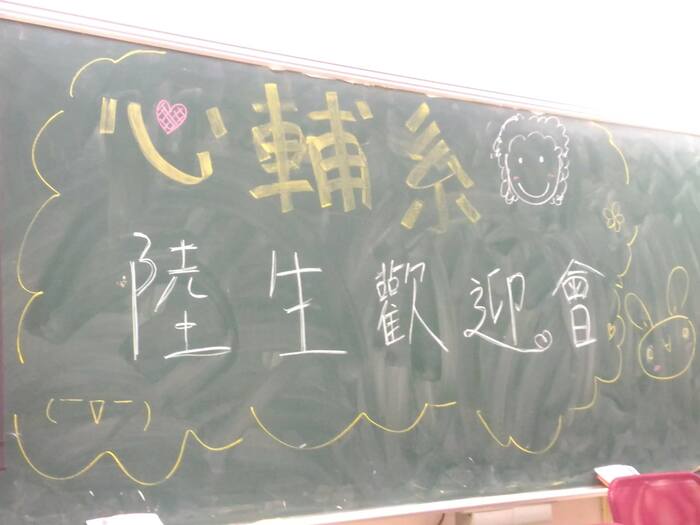 心輔系
陸生歡迎會
(￣▽￣)